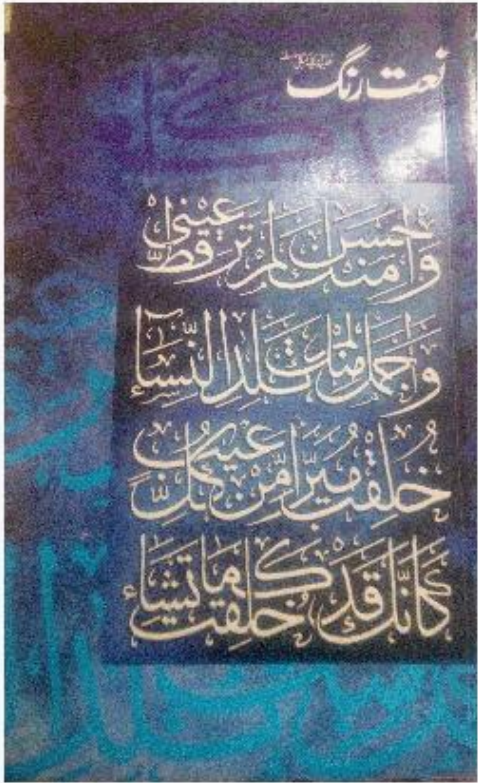 نعت رنگ
وَاَحسَنُ مِنکَ لَم تَرَ قَطُّ عَینِی
وَاَجمَلُ مِنکَ لَم تَلِدِ النِّسَآءُ
خُلِقتَ مُبَرَّاً مِّن کُلِّ عَیبٍ
کَاَنَّکَ قَد خُلِقتَ کَمَا تَشَآءُ